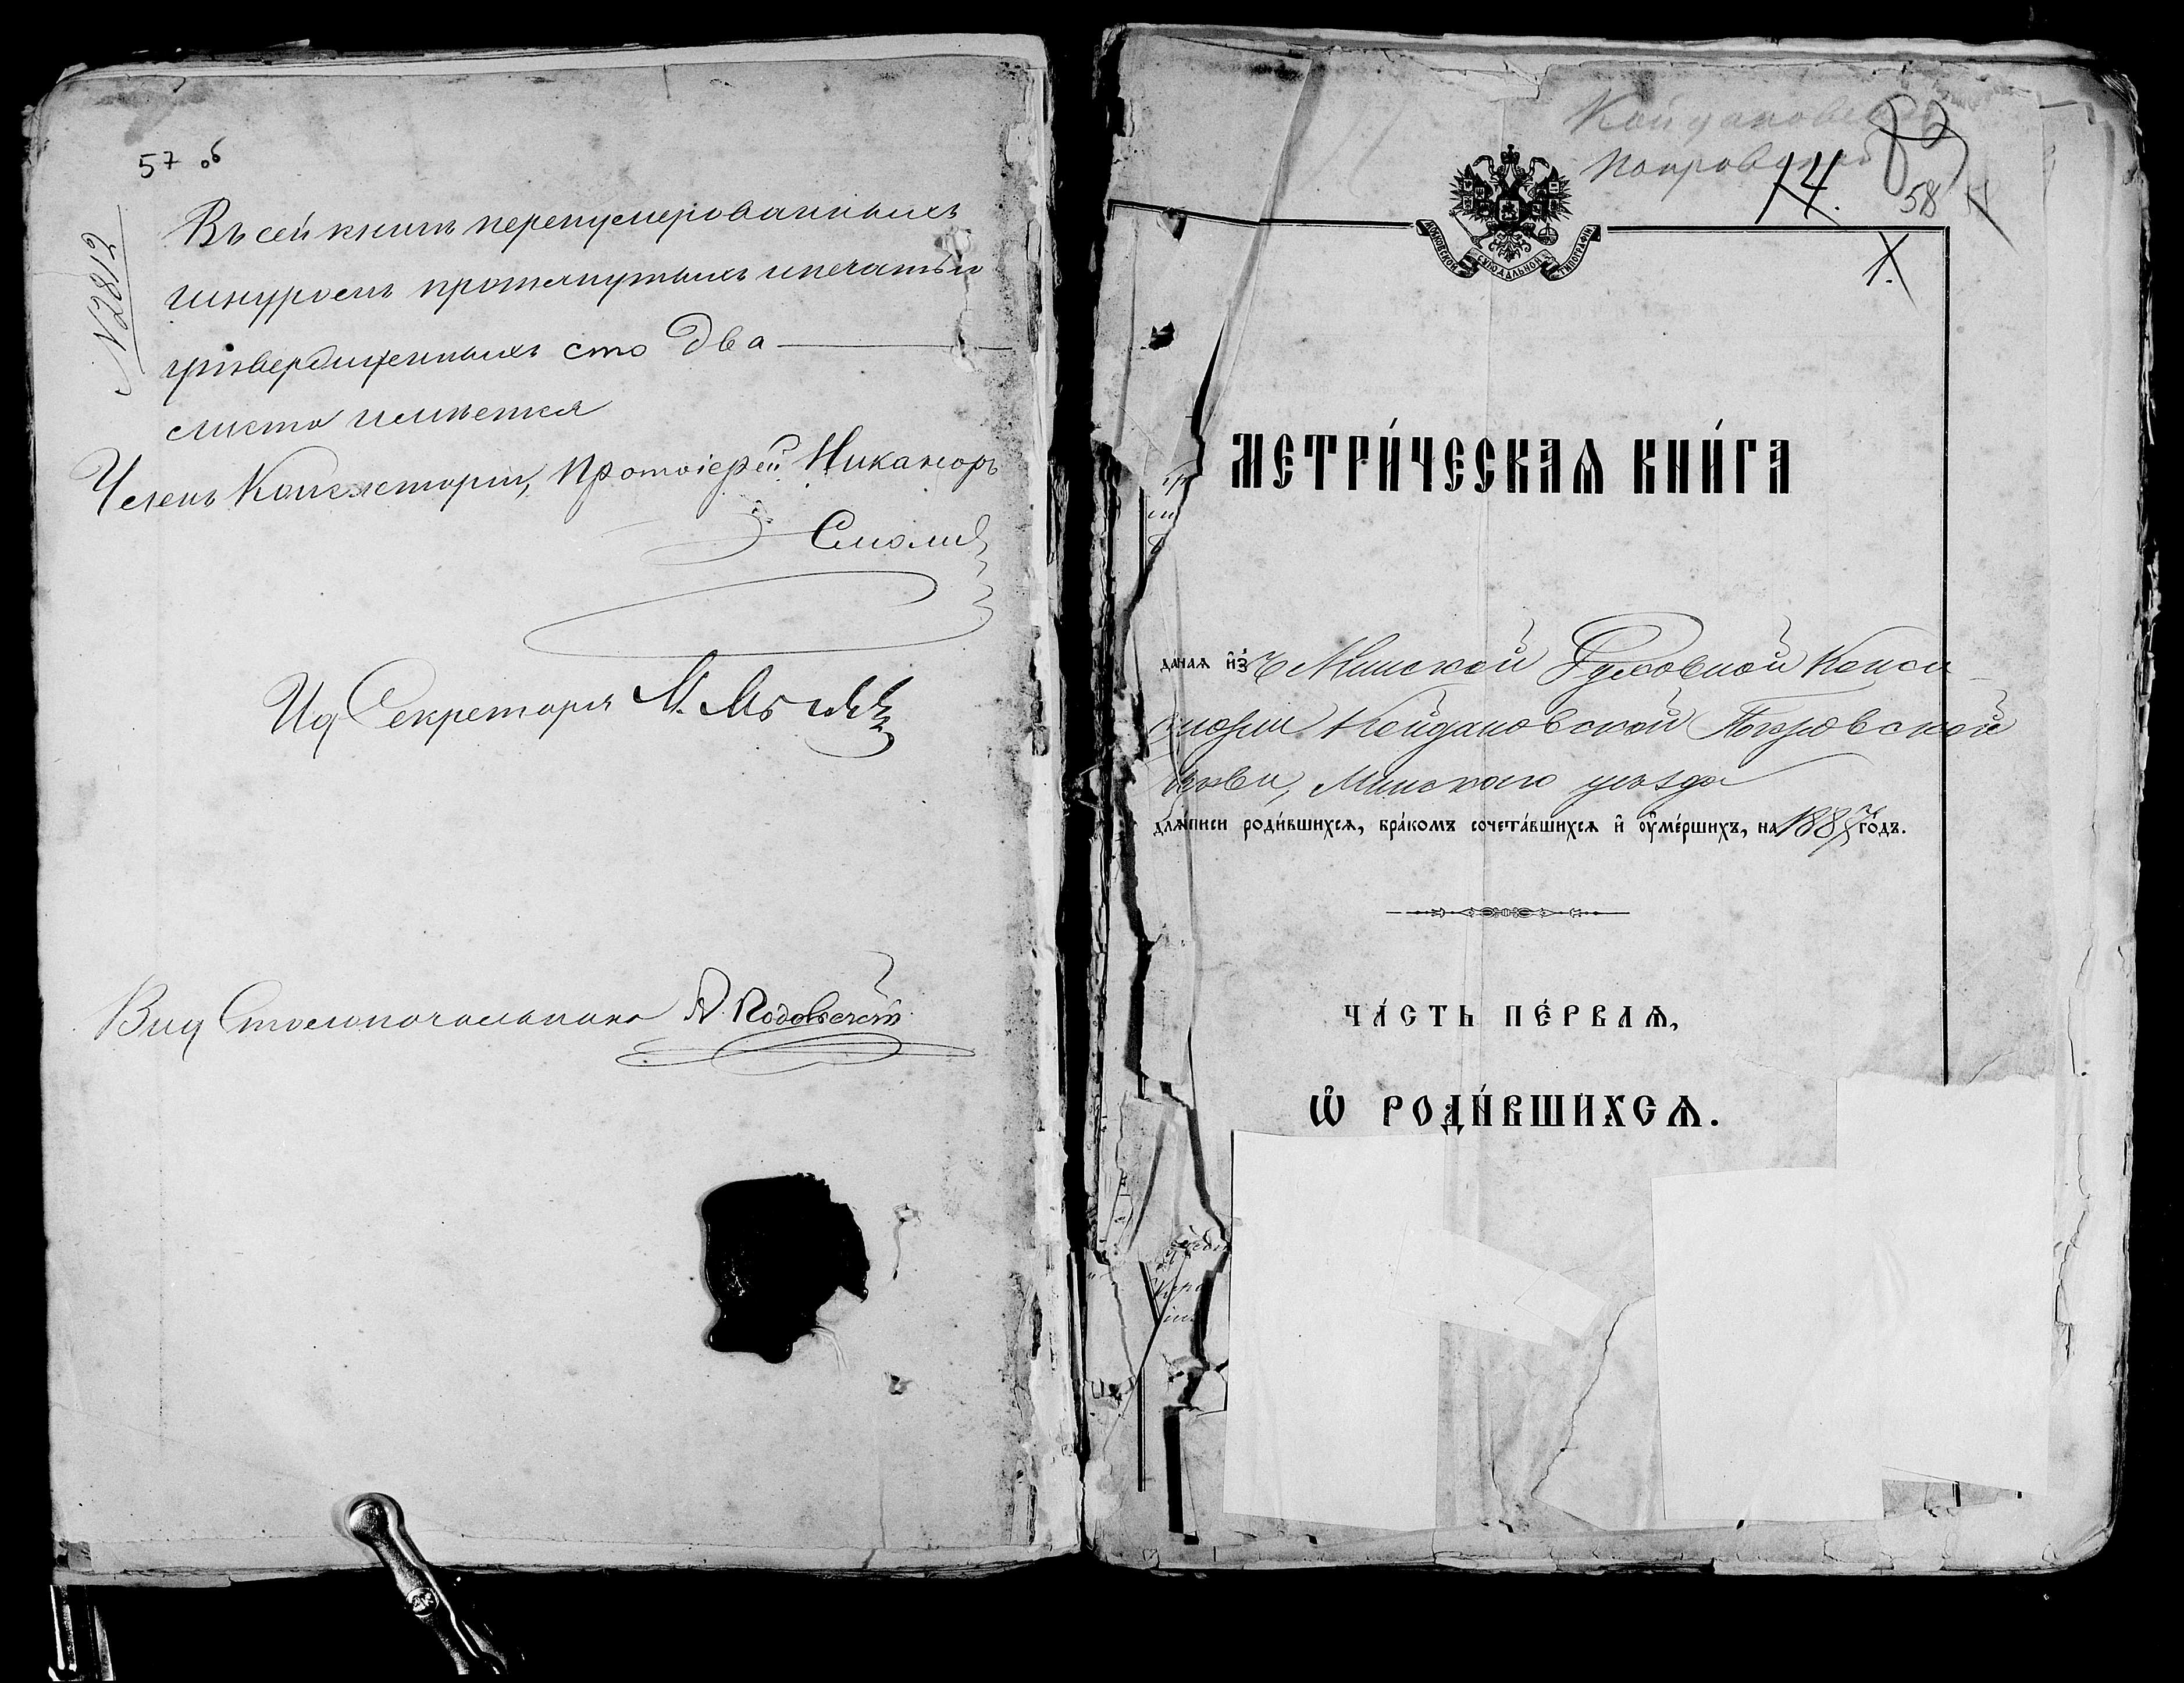 57 об
№ 2812
Въ сей книгѣ перенумерованныхъ
шнуромъ протянутыхъ и печатью
утвержденныхъ сто два
листа имѣется
Членъ Консисторіи, Протоіерей Никаноръ
Смолич
Ид Секретаря М.
Вид Столоначальника
Койдановской
Покровской
14.
58
1.
МОСКОВСКОЙ СѴНОДАЛЬНОЙ ТИПОГРАФІИ
МЕТРИ́ЧЕСКАѦ КНИ́ГА
даная и҆зъ Минской Духовной Конси
сторіи Койдановской Покровской
церкви, Минского уѣзда
для писи роди́вшихсѧ, бра́комъ сочета́вшихсѧ и҆ ᲂу҆ме́ршихъ, на 188 го́дъ.
ЧА́СТЬ ПЕ́РВАѦ,
Ѽ РОДИ́ВШИХСѦ.